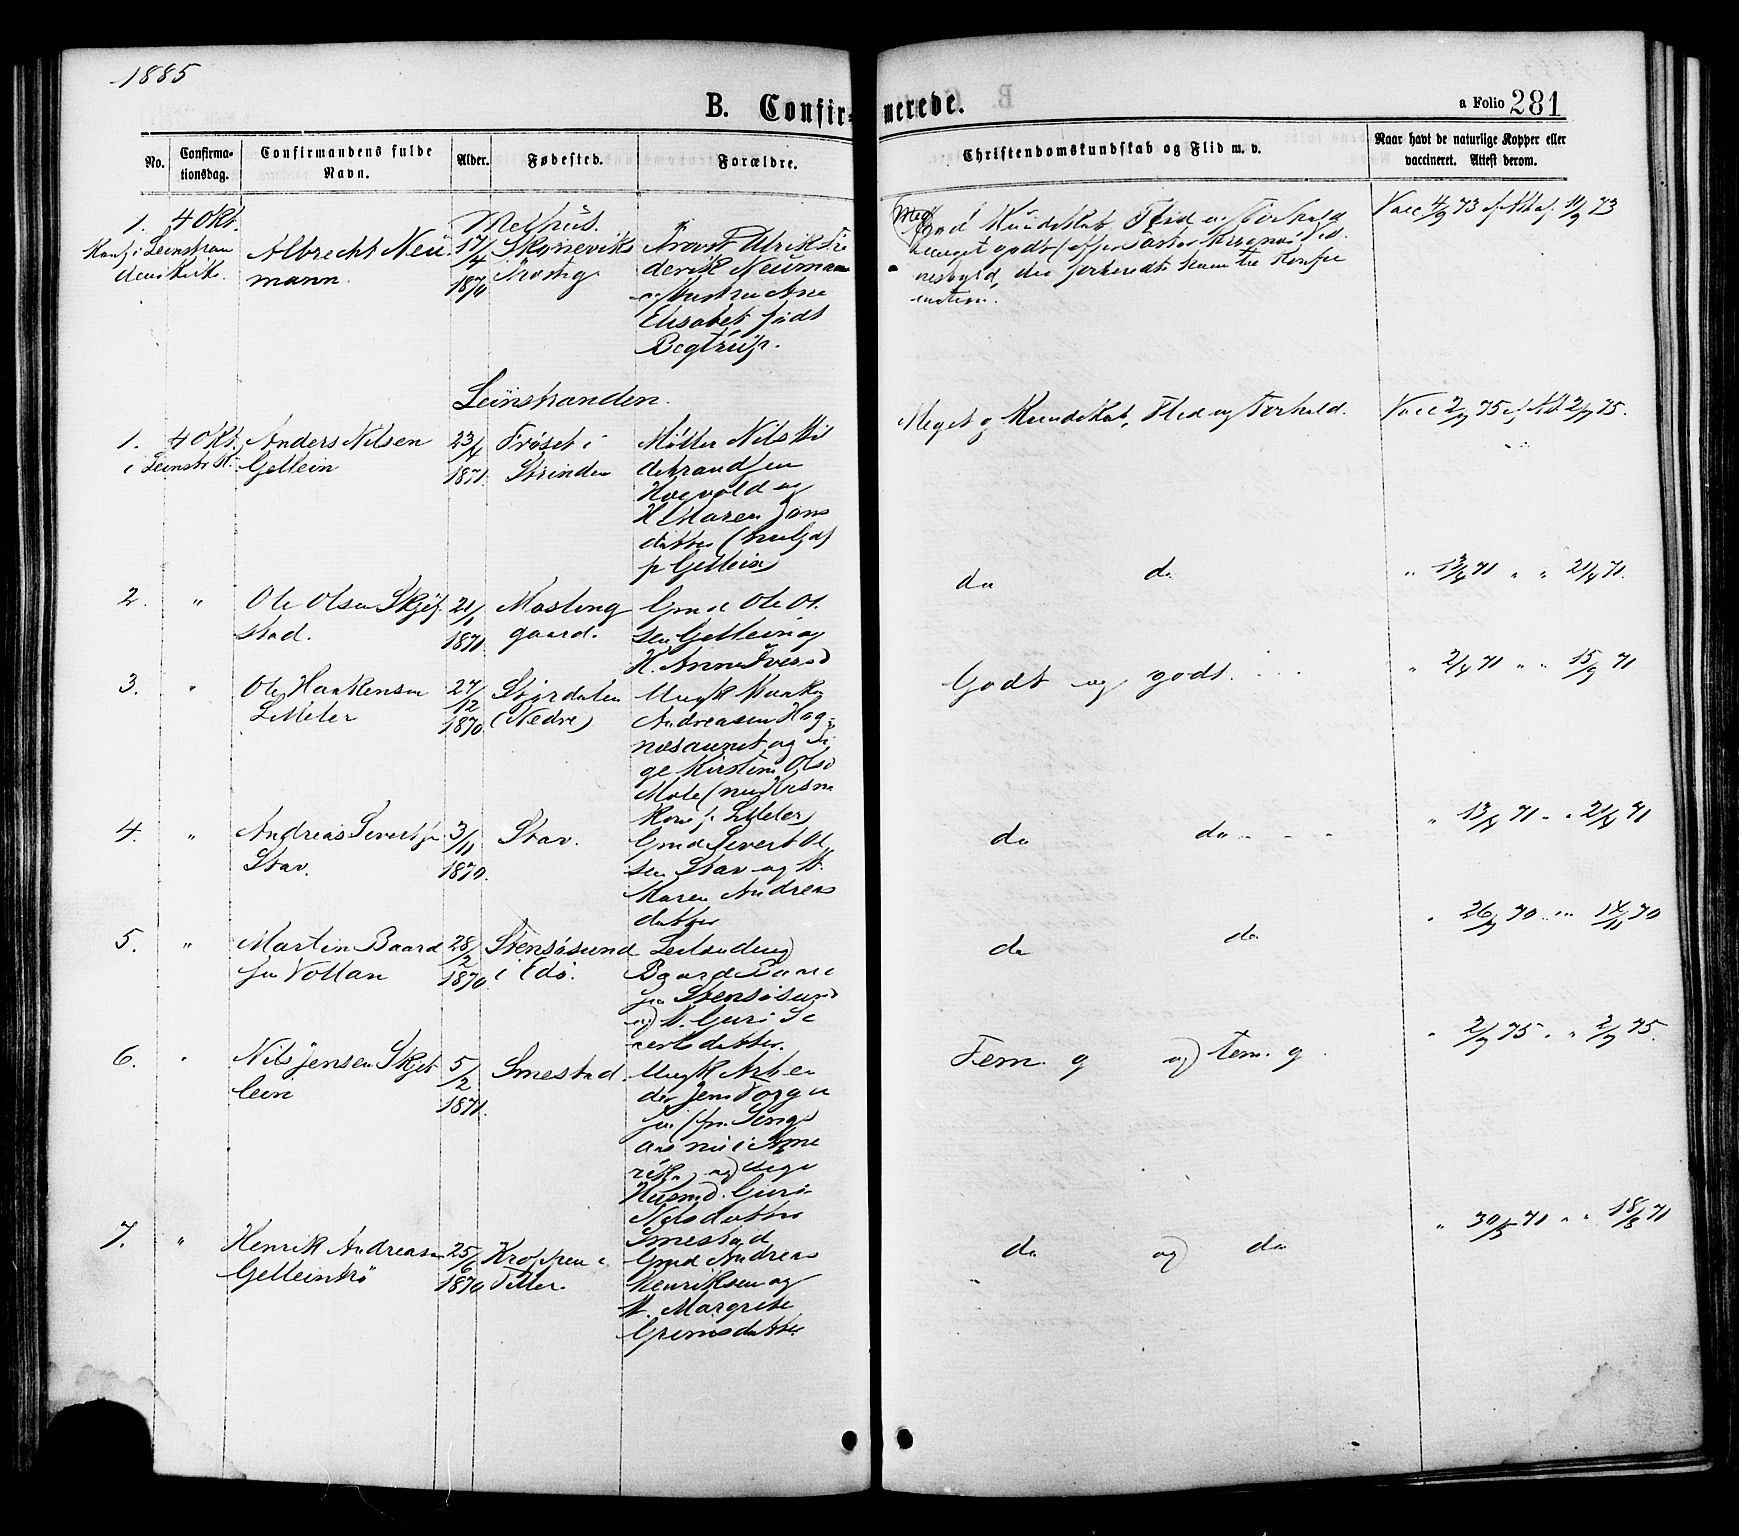 1885
B. Confir- merede.
a Folio 281
No.
Confirma-
tionsdag.
Confirmandens fulde
Navn.
Alder.
Fødested.
Forældre.
Christendomskundskab og Flid m. v.
Naar havt de naturlige Kopper eller
vaccineret. Attest derom.
Melhus.
1. 4 Okt.
i Leinstran
dens Kirke.
Albrecht Neu
mann.
17/4
1870
Skoneviks
Provst Ulrik Fre
derik Neumann
og Hustru Ane
Elisabet født
Begtrup.
Meget
god Kundskab, Flid og Forhold
meget godt (efter
Vacc 4/9 73 11/9 73
Leinstranden.
1. 4 Okt.
i Leinstr K.
Anders Nilsen
Gellein
23/4
1871.
Frøset i
Strinden
Møller Nils Hil
debrandsen
Hoevold og
H Maren Jons
datter
p Gellein)
Meget g Kundskab, Flid og Forhold.
Vacc 2/7 75 2/7 75.
2. "
Ole Olsen Skjef
stad.
21/1
1871.
Mosling
gaard.
Gmd Ole Ol
sen Gellein og
H. Anne Iversd
do do
" 13/4 71 " " 21/4 71.
3. "
Ole Haakensen
Lilleler
27/12
1870
Stjørdalen
(Nedre)
Ungk Haaken
Andreasen Hog
nesaunet og Pi
ge Kirstine Olsd
Mole (nu Husm
kone p. Lilleler)
Godt og godt.
" 2/4 71 " " 15/9 71
4. "
Andreas Sivertsen
Stav.
3/11
1870.
Stav.
Gmd Sivert Ol
sen Stav og H.
Maren Andreas
datter
do do
" 13/4 71 " " 21/4 71
5. "
Martin Baard
sen Vollan
28/2
1870
Stensøsund
i Edø.
Baard Baard
sen Stensøsund
og H. Guri Si
vertsdatter.
do do
" 26/9 70 " " 14/11 70
6. "
Nils Jensen Skjet
lein
5/2
1871.
Smestad.
Ungk Arbei
der Jens Torge
sen (fra
nu i Ame
rika) og Pige
Husmd. Guri
Nilsdatter
Smestad
Tem. g og tem. g
" 2/7 75. " 2/7 75.
7. "
Henrik Andreasen
Gelleintrø
25/6
1870
Kroppen i
Tiller.
Gmd Andreas
Henriksen og
H. Margrete
Grimsdatter
do og do
" 30/5 71 " " 18/8 71